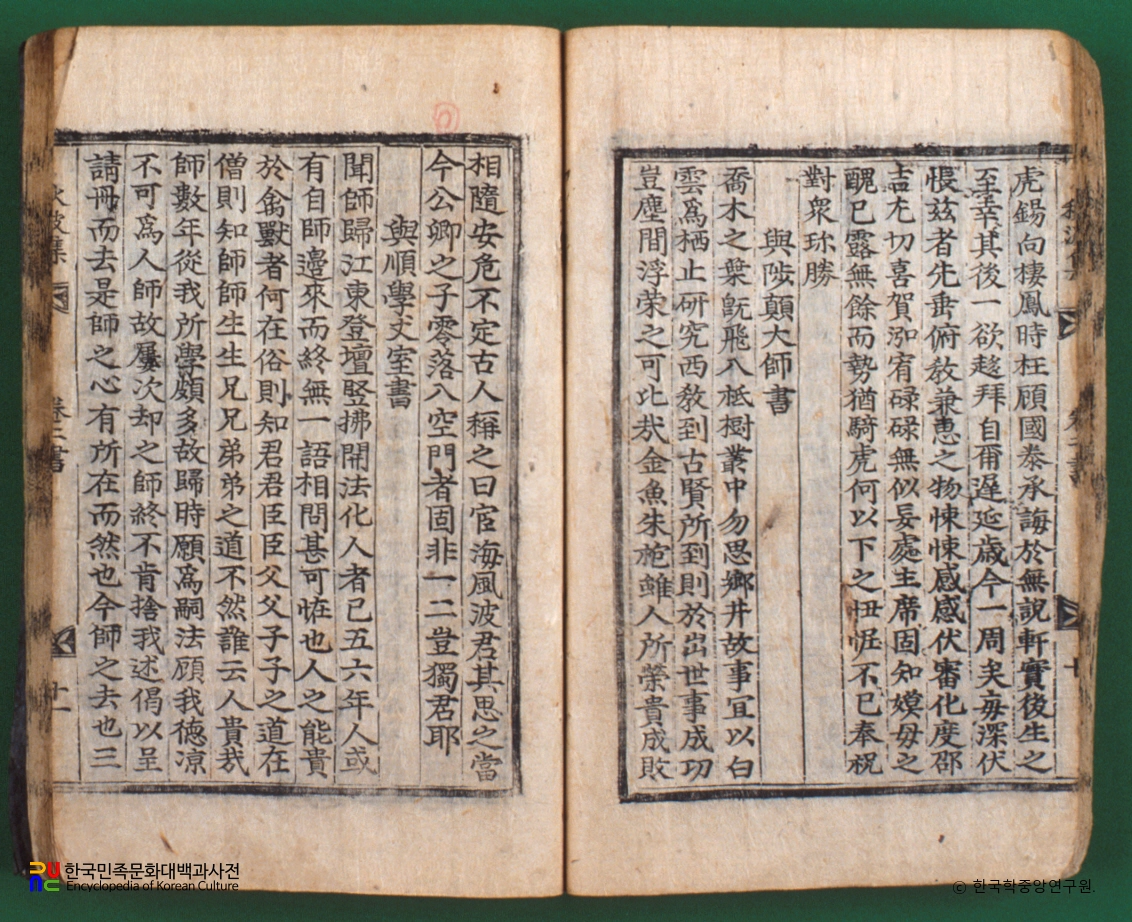 虎錫向棲鳳時枉顧國泰承誨於無說軒實後生之
至幸其後一欲趍拜自爾遲延歲今一周矣每深伏
悵玆者先垂俯敎兼惠之物悚悚感感伏審化度邵
吉尤切喜賀泓宥碌碌無似妄處主席固知嫫母之
醜已露無餘而勢猶騎虎何以下之忸怩不已奉祝
對衆珎勝
與陟顚大師書
喬木之葉旣飛入柢樹叢中勿思鄕井故事宜以白
雲爲栖止硏究西敎到古賢所到則於出世事成功
豈塵間浮荣之可比㢤金魚朱袍雖人所榮貴成敗
卷二書
十
相隨安危不定古人稱之曰宦海風波君其思之當
今公卿之子零落入空門者固非一二豈獨君耶
與順學丈室書
聞師歸江東登壇竪拂開法化人者已五六年人或
有自師邊來而終無一語相問甚可恠也人之能貴
於禽獸者何在俗則知君君臣臣父父子子之道在
僧則知師師生生兄兄弟弟之道不然誰云人貴㢤
師數年從我所學頗多故歸時願爲嗣法顧我德凉
不可爲人師故屢次却之師終不肯捨我述偈以呈
請冊而去是師之心有所在而然也今師之去也三
秋波集
卷二書
十一
한국민족문화대백과사전
Encyclopedia of Korean Culture
© 한국학중앙연구원.